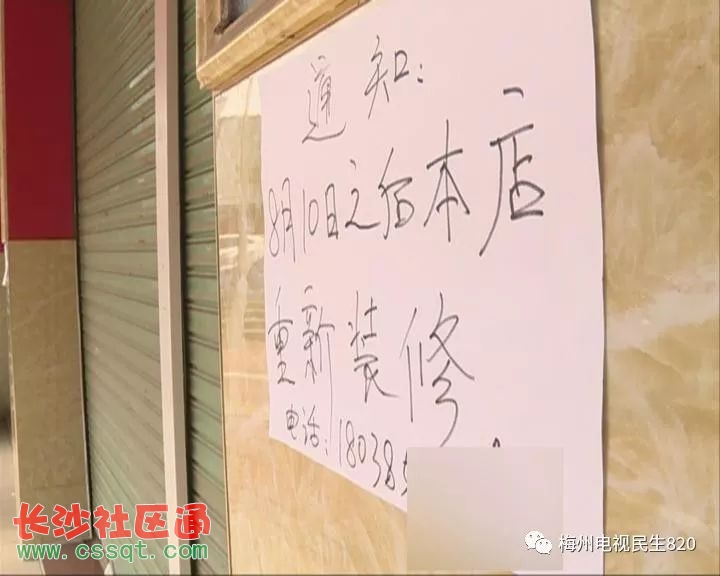 通知:
8月10日之后本店
重新装修
电话:18038
长沙社区通
www.cssqt.com
梅州电视民生820